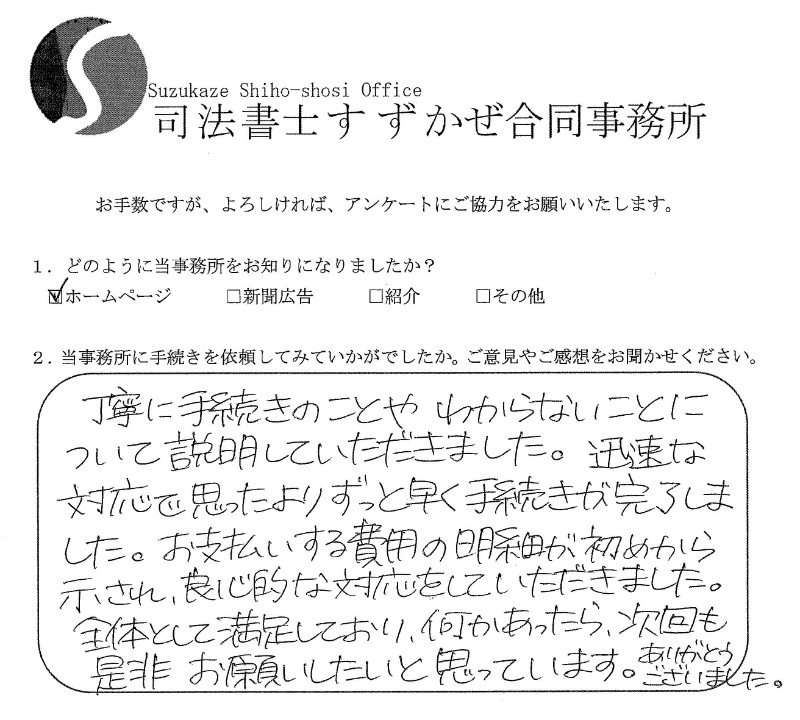 Suzukaze Shiho-shosi Office
司法書士すずかぜ合同事務所
お手数ですが、よろしければ、アンケートにご協力をお願いいたします。
1．どのように当事務所をお知りになりましたか？
☑ホームページ □新聞広告 □紹介 □その他
2．当事務所に手続きを依頼してみていかがでしたか。ご意見やご感想をお聞かせください。
丁寧に手続きのことや わからないことに
ついて説明していただきました。迅速な
対応で思ったよりずっと早く手続きが完了しま
した。お支払いする費用の明細が初めから
示され、良心的な対応をしていただきました。
全体として満足しており、何かあったら、次回も
是非 お願いしたいと思っています。ありがとう
ございました。